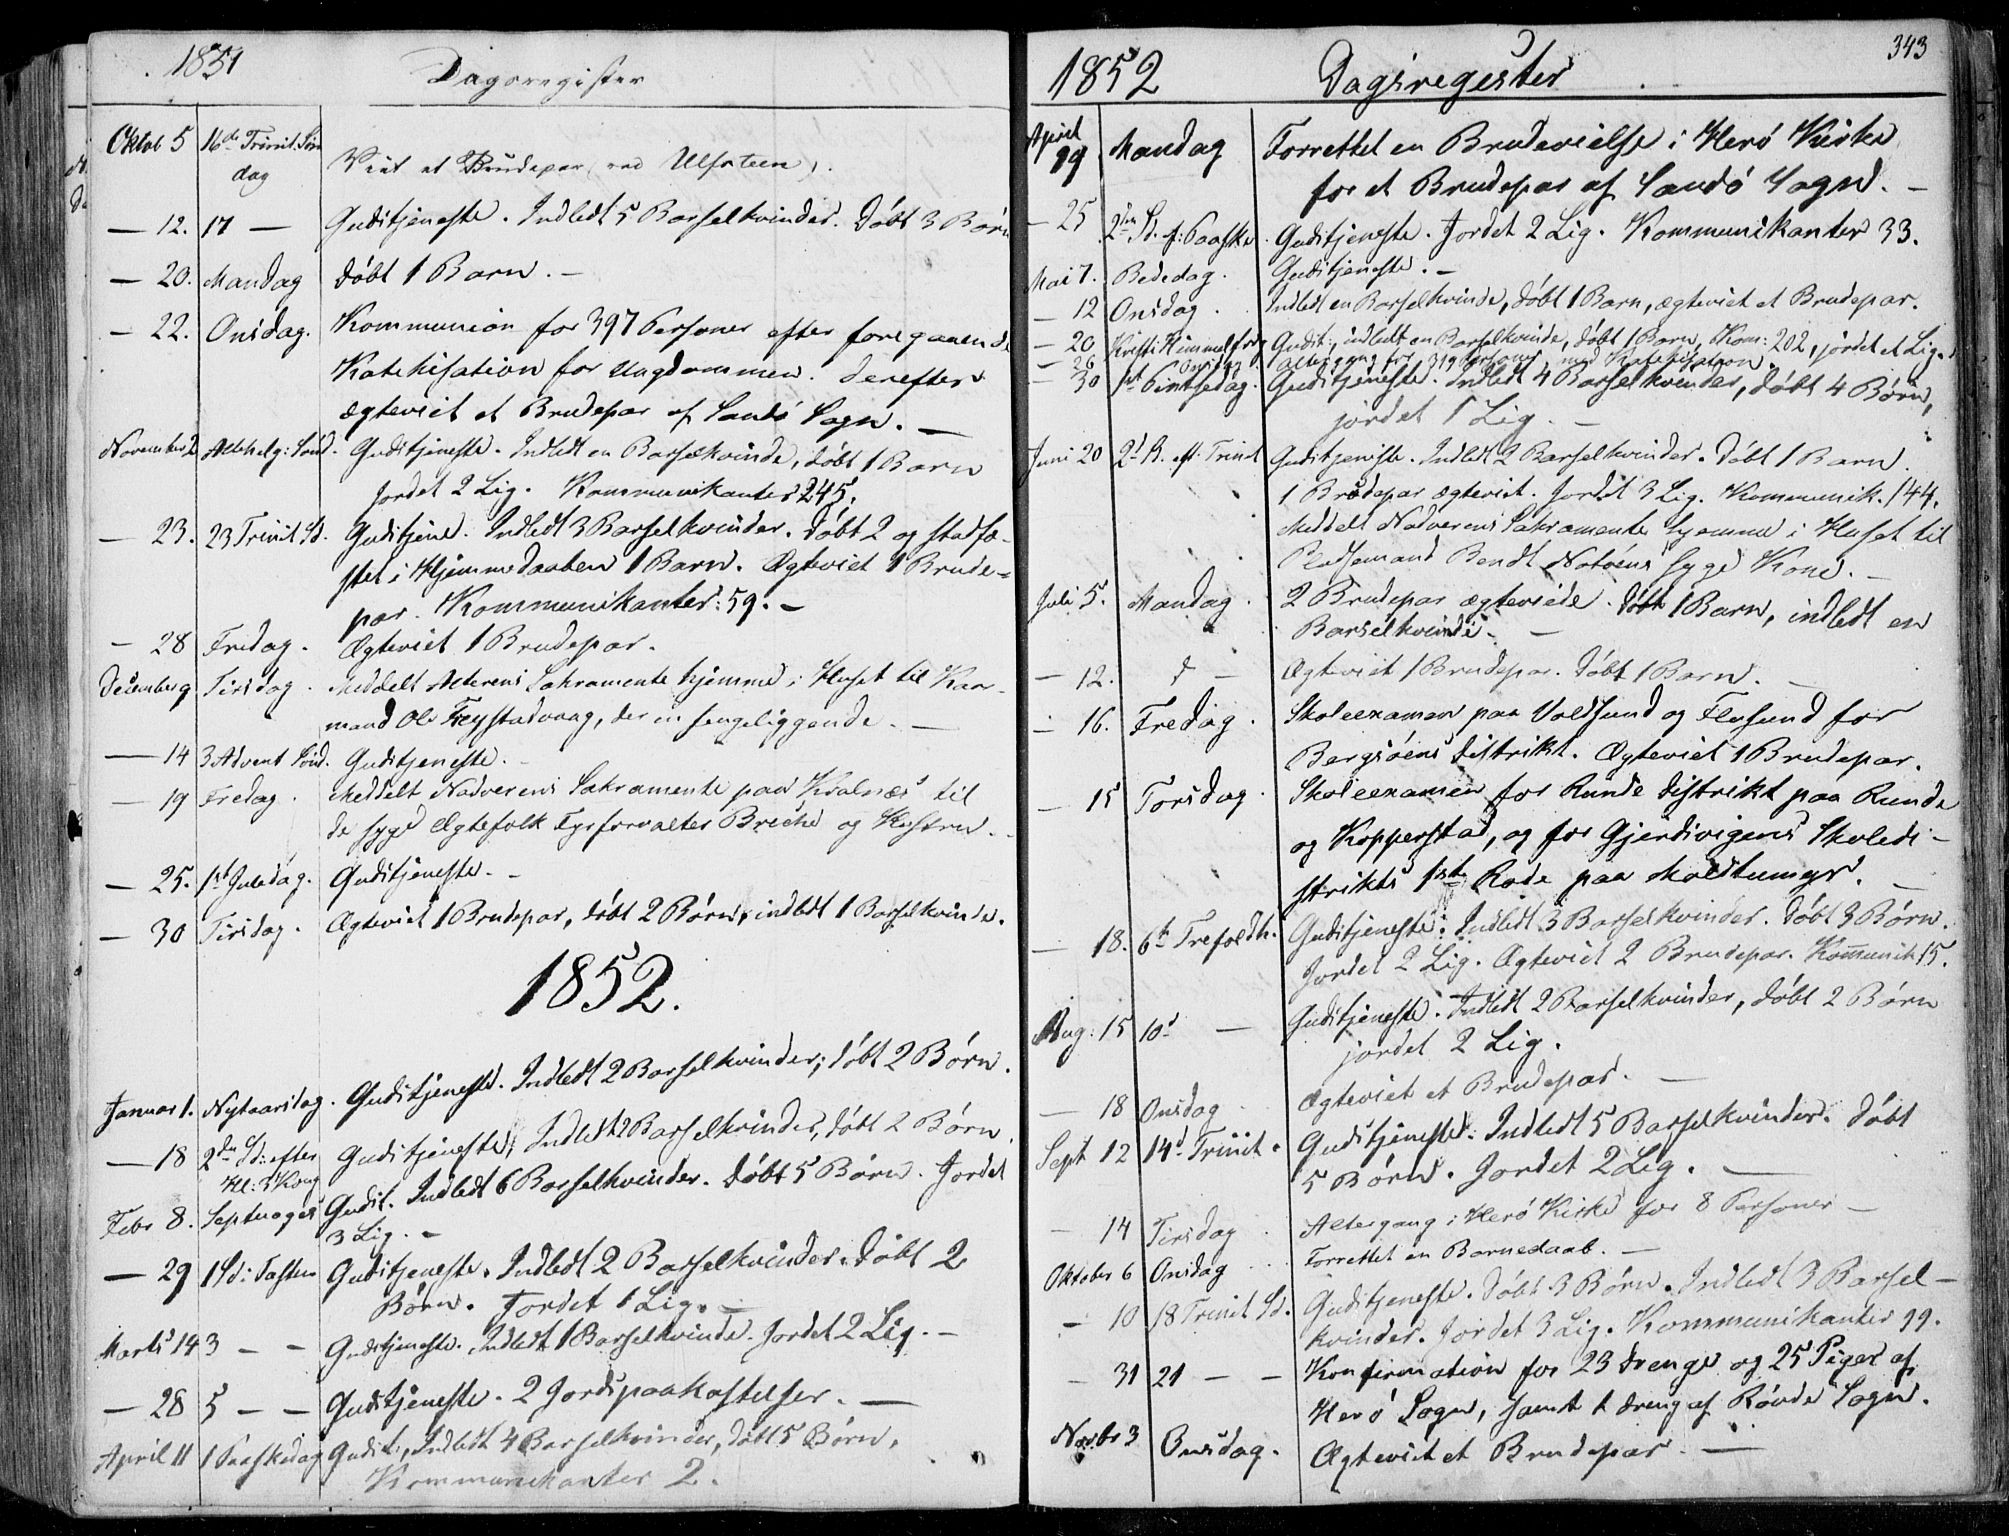 1851 Dagsregister
Oktob 5 16de Trinit. Søn
dag Viet et Brudepar (ved Ulfsteen).
— 12. 17 — Gudstjeneste. Indledt 5 Barselkvinder. Døbt 3 Børn
— 20. Mandag Døbt 1 Barn. —
— 22. Onsdag. Kommunion for 397 Personer efter foregaaende
Katekisation for Ungdommen. Derefter
ægteviet et Brudepar af Sandø Sogn. —
November 2 Allehelg: Sønd. Gudstjeneste. Indledt en Barselkvinde, døbt 1 Barn
Jordet 2 Lig. Kommunikanter 245.
— 23. 23 Trinit. Sd. Gudstjene. Indledt 3 Barselkvinder. Døbt 2 og stadfæ-
stet i Hjemmedaaben 1 Barn. Ægteviet 1 Brude-
par. Kommunikanter: 59. —
— 28 Fredag. Ægteviet 1 Brudepar.
December 9 Tirsdag. Meddelt Alterens Sakramente hjemme i Huset til Kaar-
mand Ole Frøystadvaag, der en sengeliggende. —
— 14 3 Advent Sønd. Gudstjeneste.
— 19 Fredag. Meddelt Nadverens Sakramente paa Kvalnæs til
de syge Ægtefolk Fyrforvalter Briche og Hustru.
— 25. 1st Juledag. Gudstjeneste. —
— 30 Tirsdag. Ægteviet 1 Brudepar, døbt 2 Børn, indledt 1 Barselkvinde.
1852.
Januar 1. Nytaarsdag. Gudstjeneste. Indledt 2 Barselkvinder; døbt 2 Børn.
— 18 2den Sd: efter Gudstjeneste, Indledt 2 Barselkvinder, døbt 2 Børn.
Hl: 3 Kong
Febr 8. Septuages Gudst. Indledt 6 Barselkvinder. Døbt 5 Børn. Jordet
3 Lig. —
— 29 1 Sd: Fasten Gudstjeneste. Indledt 2 Barselkvinder. Døbt 2
Børn. Jordet 1 Lig. —
Marts 14 3 — — Gudstjeneste. Indledt 1 Barselkvinde. Jordet 2 Lig. —
— 28 5 — — Gudstjeneste. 2 Jordspaakastelser. —
April 11 1 Paaskedag Gudst:, Indledt 4 Barselkvinder, døbt 5 Børn.
Kommunikanter 2.
1852 Dagsregister 343
April
19 Mandag Forrettet en Brudevielse i Herø Kirke
for et Brudepar af Sandø Sogn. —
— 25 2den Sd. f: Paaske. Gudstjeneste. Jordet 2 Lig. Kommunikanter 33.
Mai 7. Bededag. Gudstjeneste. —
— 12 Onsdag. Indledt en Barselkvinde, døbt 1 Barn, ægteviet et Brudepar.
— 20 Kristi Himmelfrdg Gudst:, indledt en Barselkvinde, døbt 1 Barn, Kom: 202, jordet et Lig.
— 26 Onsdag. Altergang for 319 Personer med Katekisation
— 30 1st Pintsedag. Gudstjeneste. Indledt 4 Barselkvinder, døbt 4 Børn,
jordet 1 Lig. —
Juni 20 2d S. eft. Trinit Gudstjeneste. Indledt 2 Barselkvinder. Døbt 1 Barn.
1 Brudepar ægteviet. Jordet 3 Lig. Kommunik. 144.
Meddelt Nadverens Sakramente hjemme i Huset til
Pladsemand Bendt Notøens syge Kone. —
Juli 5. Mandag. 2 Brudepar ægteviede. Døbt 1 Barn, indledt en
Barselkvinde. —
— 12. d — Ægteviet 1 Brudepar. Døbt 1 Barn. —
— 16. Fredag. Skoleexamen paa Voldsund og Flusund for
Bergsøens Distrikt. Ægteviet 1 Brudepar.
— 15 Torsdag. Skoleexamen for Runde Distrikt paa Runde
og Kopperstad, og for Gjerdsvigens Skoledi-
strikts 1ste Rode paa Moldtumyr. —
— 18. 6te Trefoldh. Gudstjeneste. Indledt 3 Barselkvinder. Døbt 3 Børn.
Jordet 2 Lig. Ægteviet 2 Brudepar. Kommunik 15.
Aug: 15 10d — Gudstjeneste. Indledt 2 Barselkvinder, døbt 2 Børn
jordet 2 Lig.
— 18 Onsdag Ægteviet et Brudepar. —
Sept 12 14d Trinit. Gudstjeneste. Indledt 5 Barselkvinder. Døbt
5 Børn. Jordet 2 Lig. —
— 14 Tirsdag. Altergang i Herø Kirke for 8 Personer —
Oktober 6 Onsdag Forrettet en Barnedaab. —
— 10 18 Trinit Sd. Gudstjeneste. Døbt 3 Børn. Indledt 3 Barsel-
kvinder. Jordet 3 Lig. Kommunikanter 99.
— 31 21 — — Konfirmation for 23 Drenge og 25 Piger af
Herø Sogn, samt 1 Dreng af Røvde Sogn.
Novbr 3 Onsdag. Ægteviet et Brudepar. —